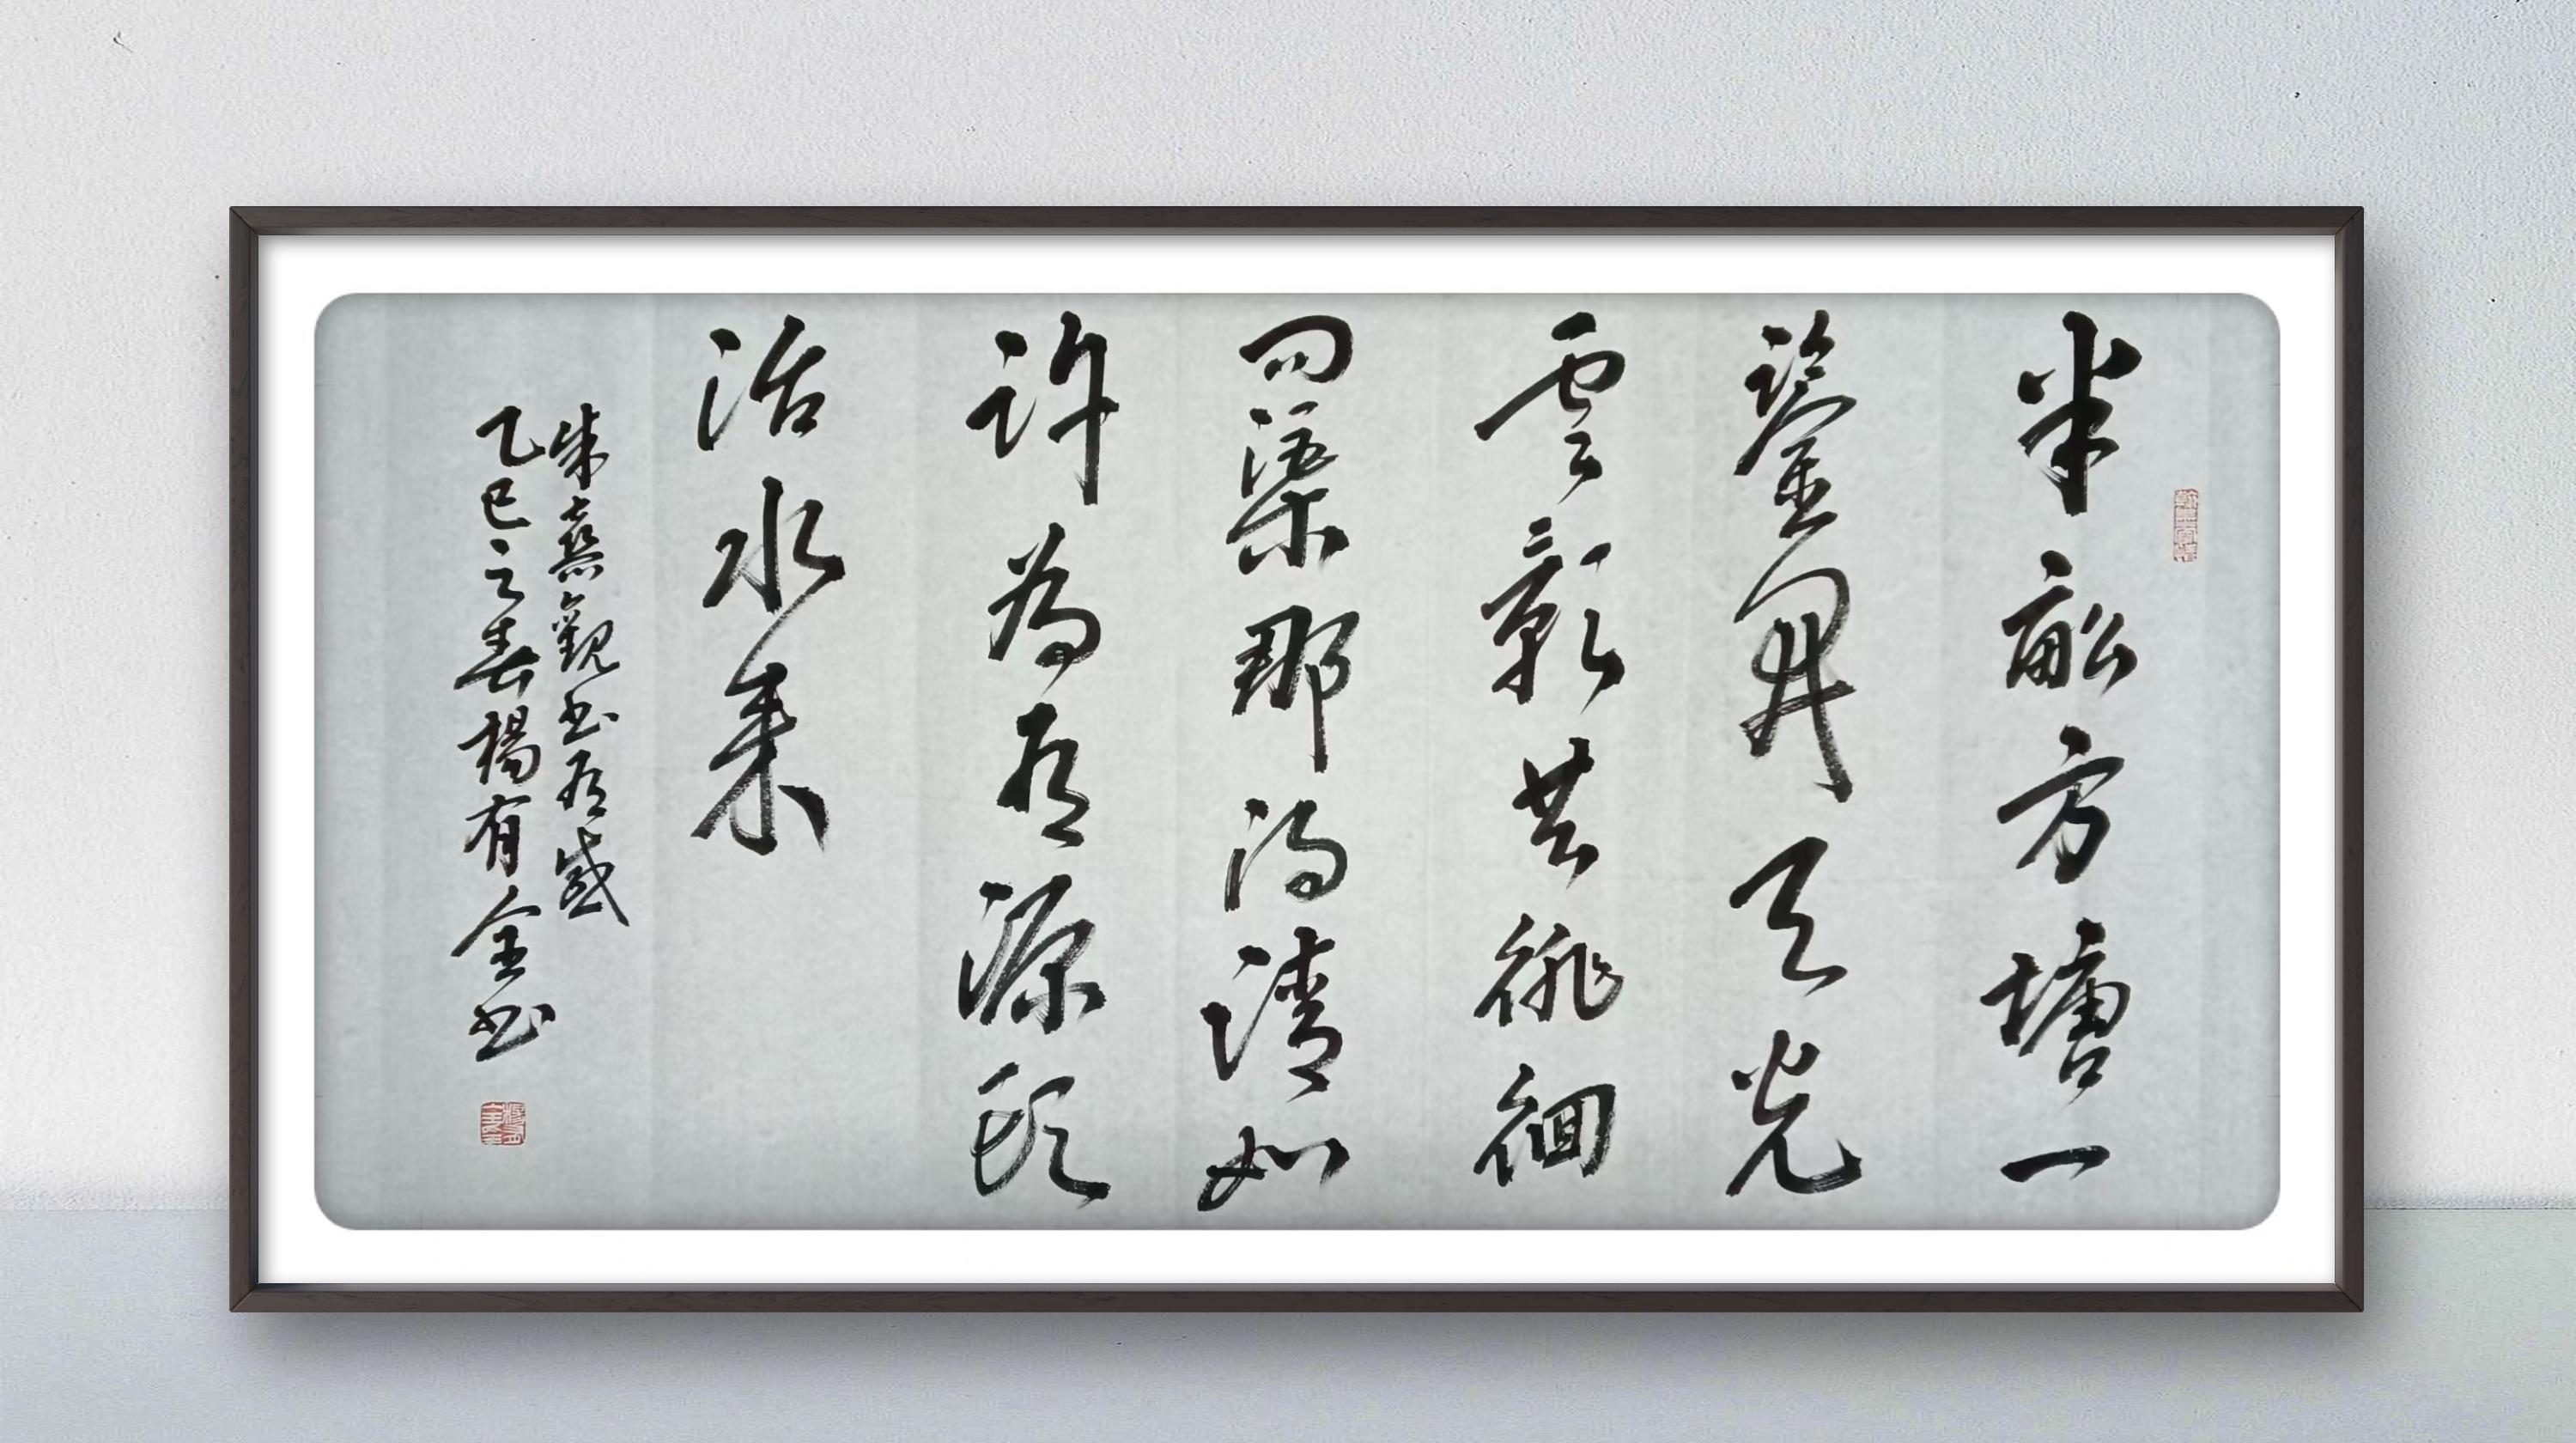 半畝方塘一
鑒開天光
雲影共徘徊
問渠那得清如
許為有源頭
活水来
朱熹觀書有感
乙巳之春楊有全書